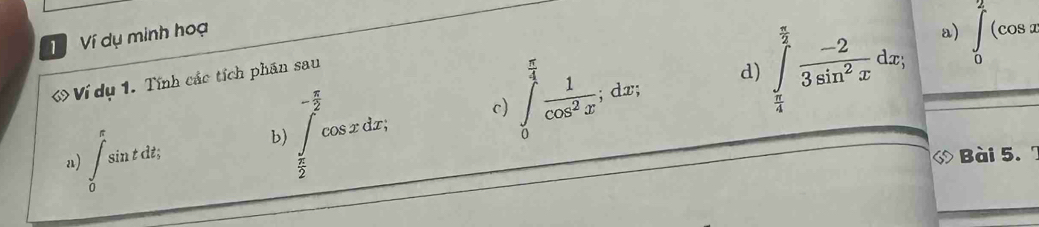 1 Ví dụ minh hoạ
Ví dụ 1. Tính các tích phân sau
a) ∫₀^π sin t dt;
b) ∫_{π/2}^{-π/2} cos x dx;
c) ∫₀^{π/4} 1/cos² x; dx;
d) ∫_{π/4}^{π/2} -2/(3 sin² x) dx;
a) ∫₀ (cos x
Bài 5.